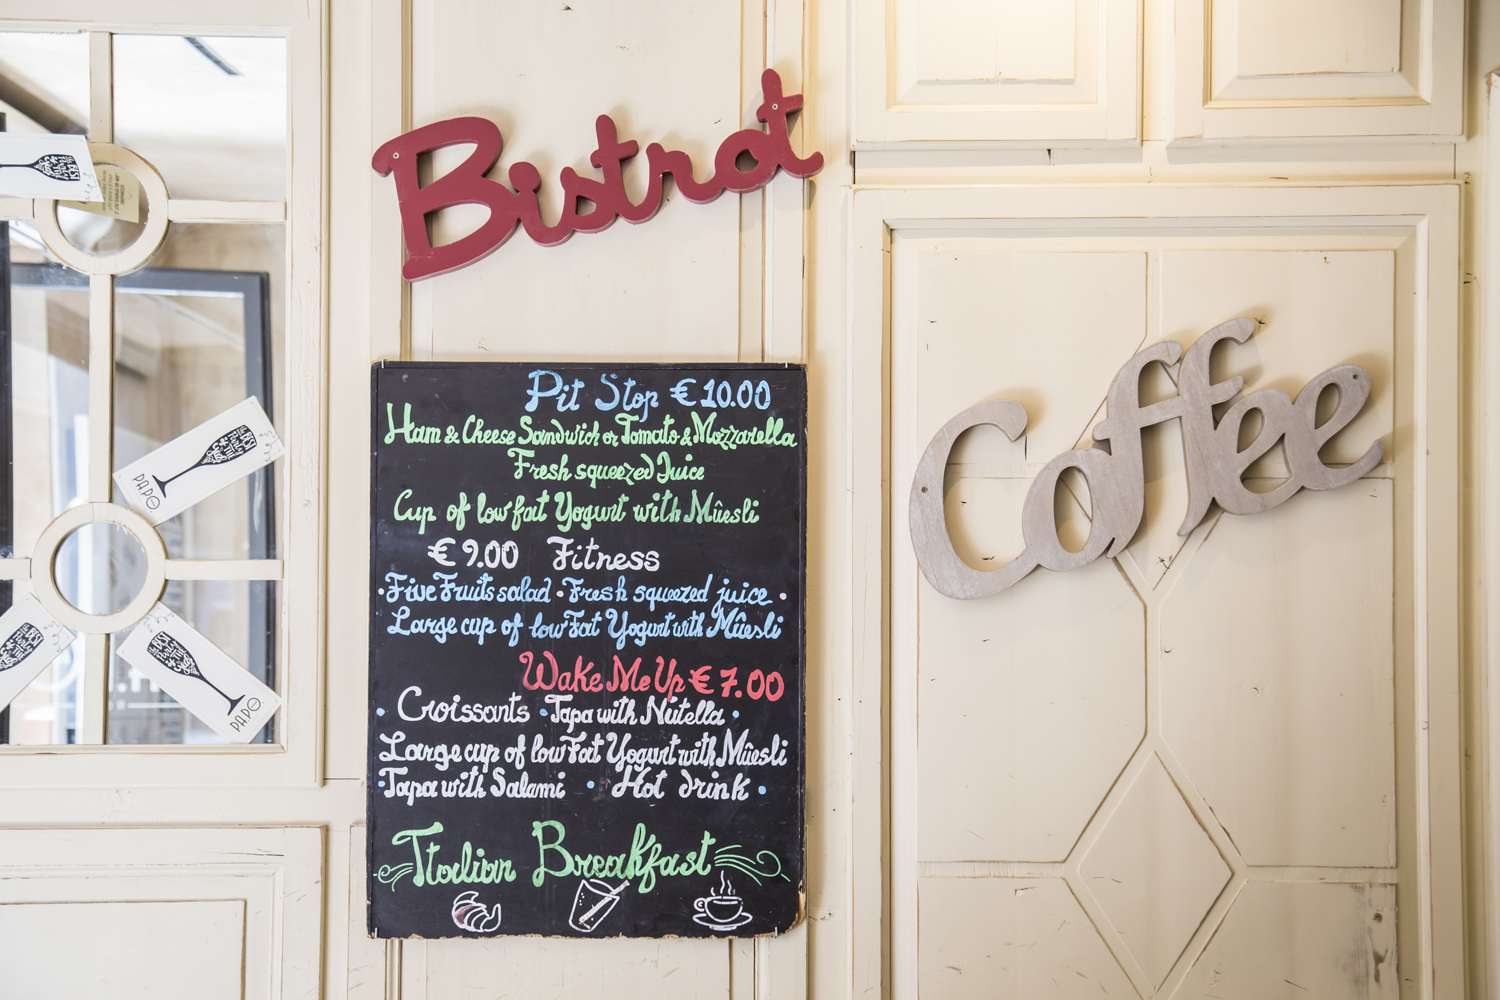 Bistrot
Coffee
Pit Stop € 10.00
Ham & Cheese Sandwich or Tomato & Mozzarella
Fresh squeezed Juice
Cup of low fat Yogurt with Mûesli
€ 9.00 Fitness
• Five Fruits salad • Fresh squeezed juice •
Large cup of low Fat Yogurt with Mûesli
Wake Me Up € 7.00
• Croissants • Tapa with Nutella •
Large cup of low Fat Yogurt with Mûesli
• Tapa with Salami • Hot drink •
Italian Breakfast
PAPO
PAPO